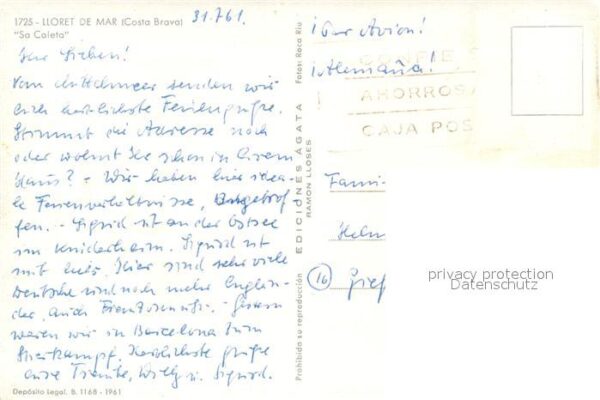 1725 - LLORET DE MAR (Costa Brava)
"Sa Caleta"
31.7.61.
Ihr Lieben!
Vom Mittelmeer senden wir
Euch herzlichste Feriengrüße.
Stimmt die Adresse noch
oder wohnt Ihr schon in Eurem
Haus? - Wir haben hier idea-
le Ferienverhältnisse,
fen. - Sigrid ist an der Ostsee
im Kinderheim. Sigurd ist
mit hier. Hier sind sehr viele
Deutsche und noch mehr Englän-
der, auch Franzosen - Gestern
waren wir in Barcelona zum
Stierkampf. Herzlichste Grüße
Eure Traute, Willy u. Sigurd.
Depósito Legal. B. 1168 - 1961
Prohibida su reproducción
EDICIONES ÁGATA
RAMON LLOSES
Fotos: Roca Riu
¡Por Avion!
¡Alemaña!
AHORROS
CAJA POS
Fami-
Helm
(16)
Gref
privacy protection
Datenschutz